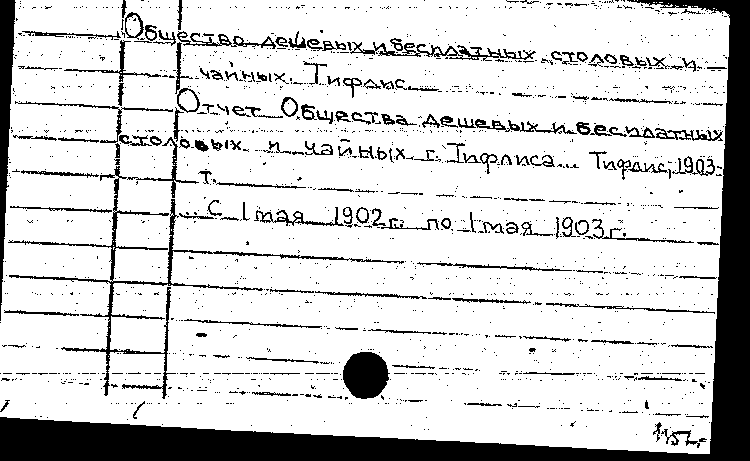 Общество дешевых и бесплатных столовых и
чайных. Тифлис.
Отчет Общества дешевых и бесплатных
столовых и чайных г. Тифлиса... Тифлис, 1903-
т.
... С 1 мая 1902 г. по 1 мая 1903 г.